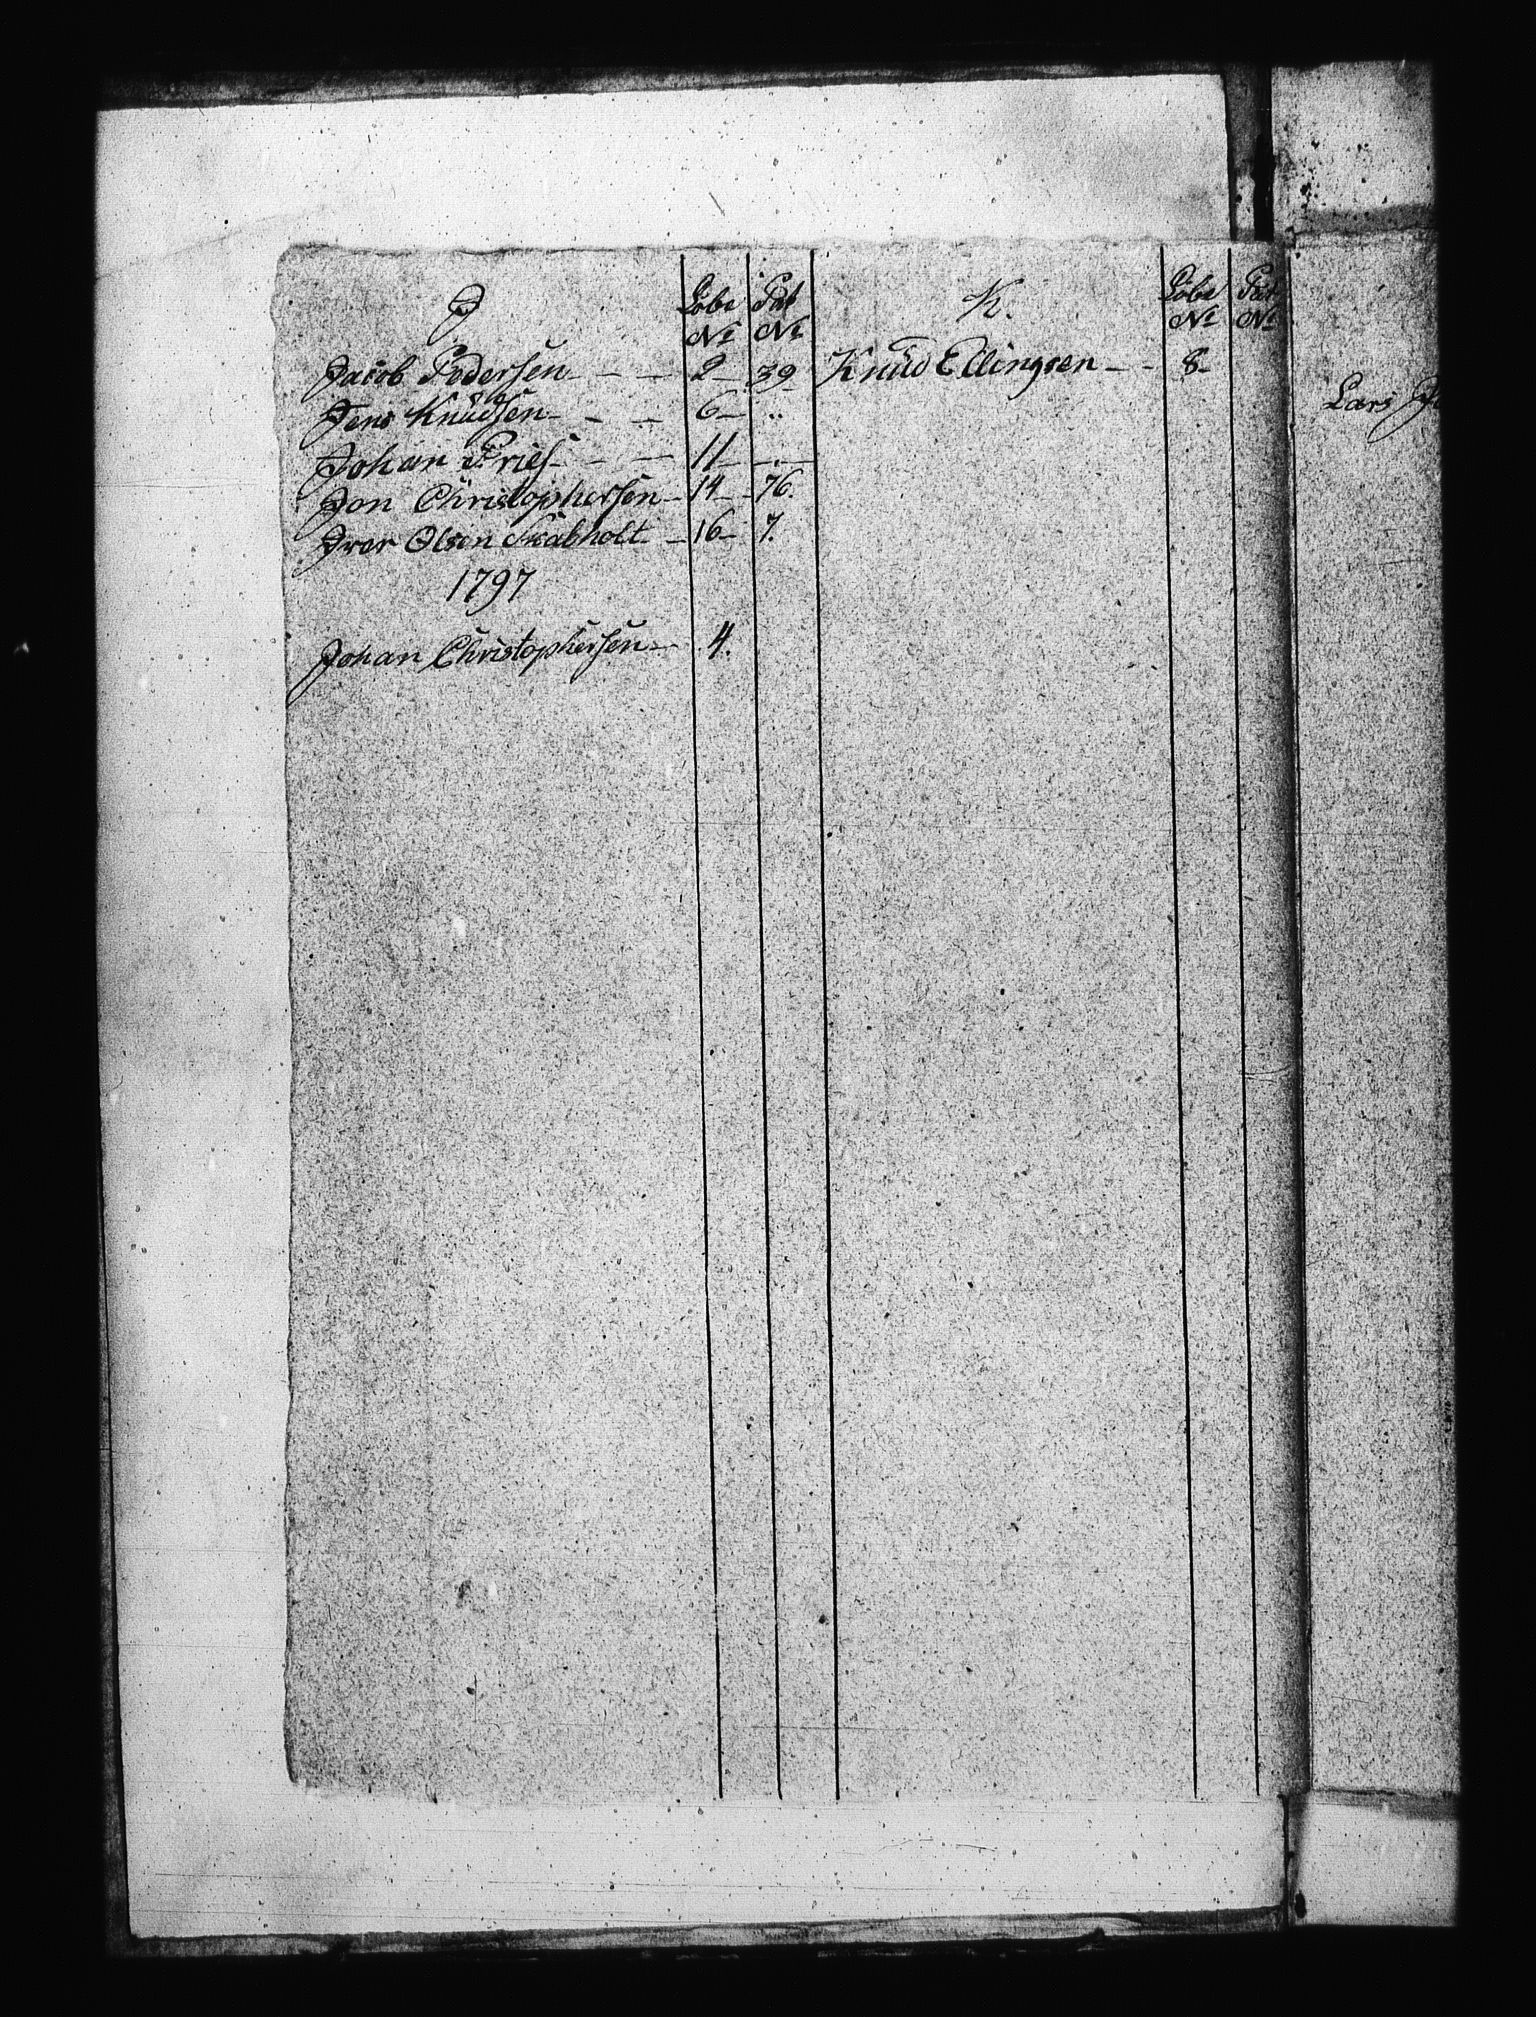 J
Löbe Pat
No No
Jacob Pedersen 2 39
Jens Knudsen 6 ..
Johan Fries 11 .
Jon Christophersen 14 76.
Iver Olsen Skabholt 16 7.
1797
Johan Christophersen 4.
K.
Löbe Pat
No No
Knud Ellingsen 8
Lars